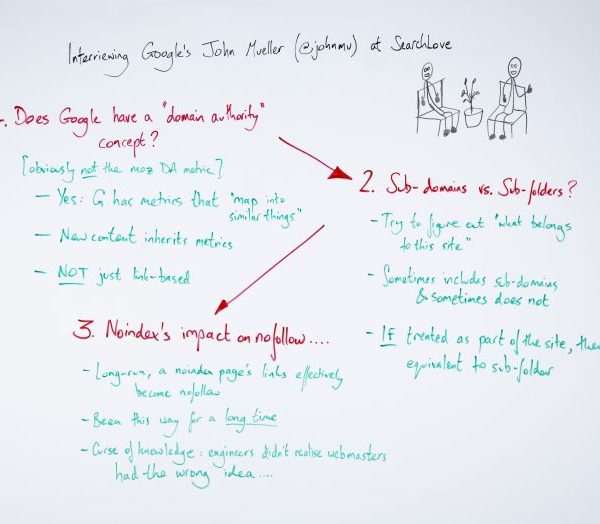 Interviewing Google's John Mueller (@johnmu) at SearchLove
1. Does Google have a "domain authority"
concept?
[obviously not the moz DA metric]
- Yes: G has metrics that "map into
similar things"
- New content inherits metrics
- NOT just link-based
2. Sub-domains vs. Sub-folders?
- Try to figure out "what belongs
to this site"
- Sometimes includes sub-domains
& sometimes does not
- IF treated as part of the site, then
equivalent to sub-folder
3. Noindex's impact on nofollow....
- Long-run, a noindex page's links effectively
become nofollow
- Been this way for a long time
- Curse of knowledge: engineers didn't realise webmasters
had the wrong idea....